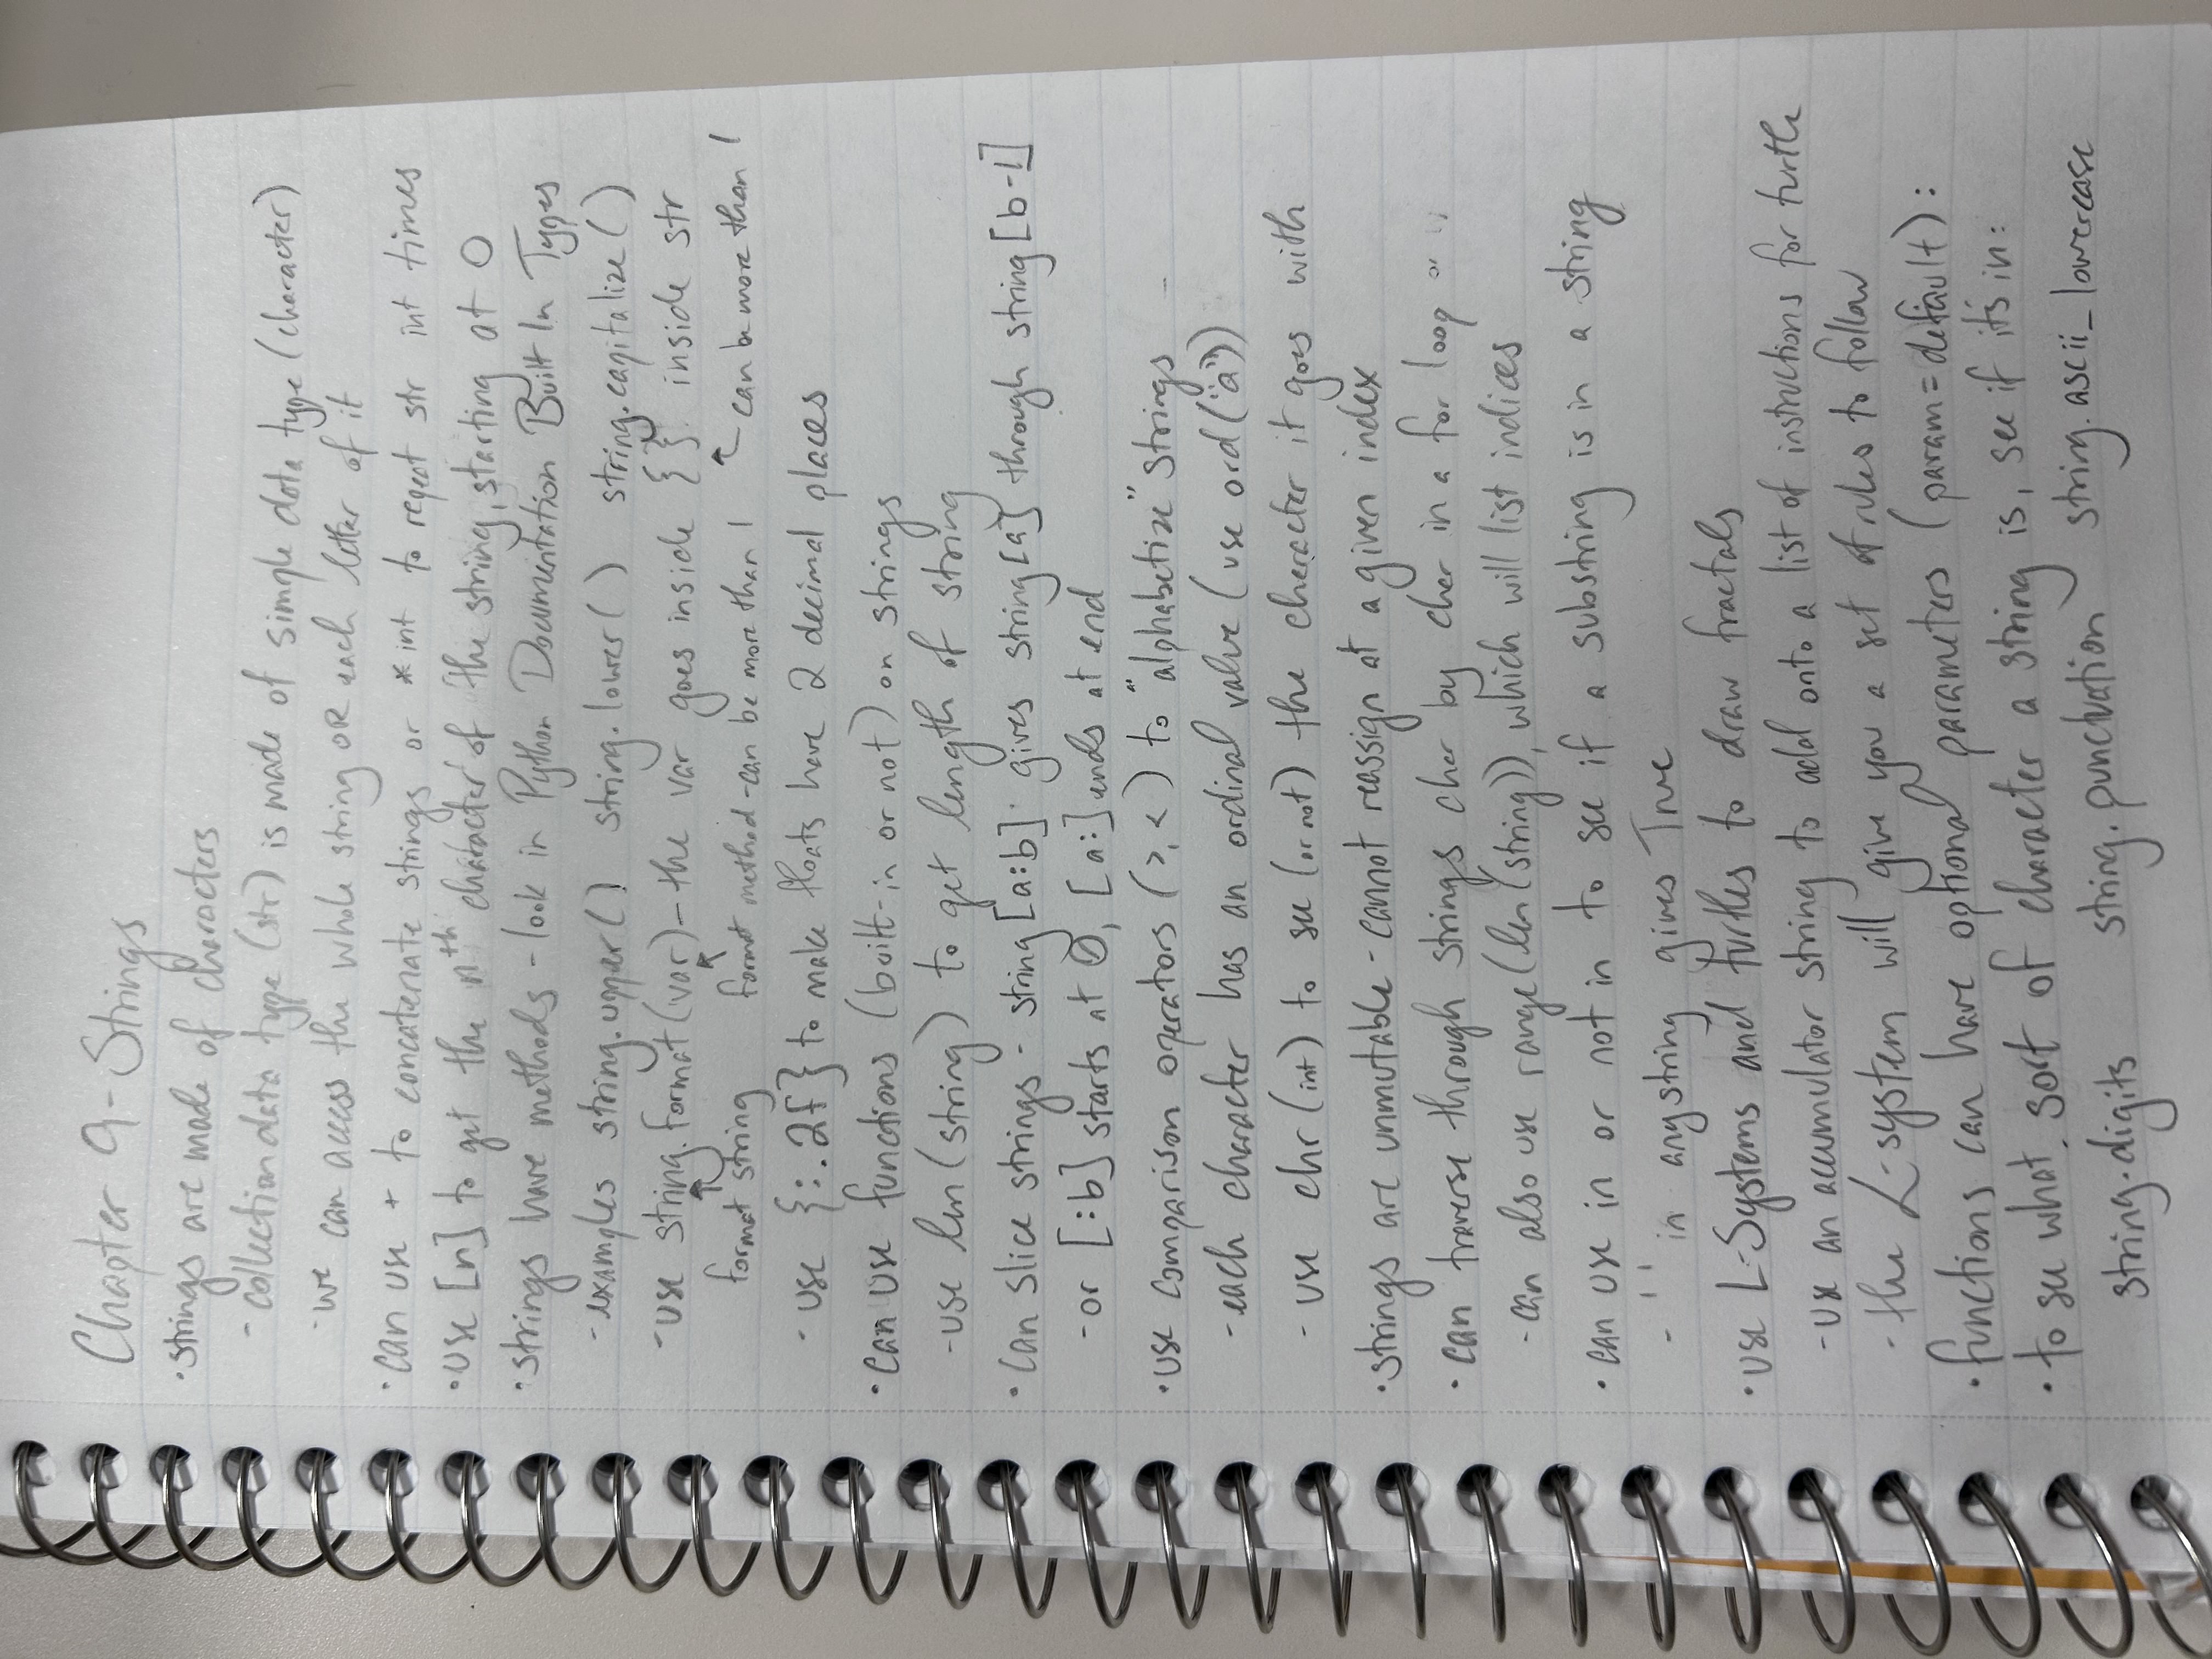 Chapter 9-Strings
·strings are made of characters
-collection data type (str) is made of simple data type (character)
-we can access the whole string OR each letter of it
·can use + to concatenate strings or *int to repeat str int times
·use [n] to get the nth character of the string, starting at 0
·strings have methods - look in Python Documentation Built In Types
-examples string.upper() string.lower() string.capitalize()
-use string.format(var)-the var goes inside {} inside str
format string format method-can be more than 1 can be more than 1
-use {:.2f} to make floats have 2 decimal places
·can use functions (built-in or not) on strings
-use len(string) to get length of string
·can slice strings - string[a:b] gives string[a] through string[b-1]
-or [:b] starts at 0, [a:] ends at end
·use comparison operators (>,<) to "alphabetize" strings
-each character has an ordinal value (use ord("a"))
-use chr(int) to see (or not) the character it goes with
·strings are unmutable-cannot reassign at a given index
·can traverse through strings char by char in a for loop
-can also use range(len(string)), which will list indices
·can use in or not in to see if a substring is in a string
-'' in anystring gives True
·use L-Systems and turtles to draw fractals
-use an accumulator string to add onto a list of instructions for turtle
-the L-system will give you a set of rules to follow
·functions can have optional parameters (param=default):
·to see what sort of character a string is, see if it's in:
string.digits string.punctuation string.ascii_lowercase